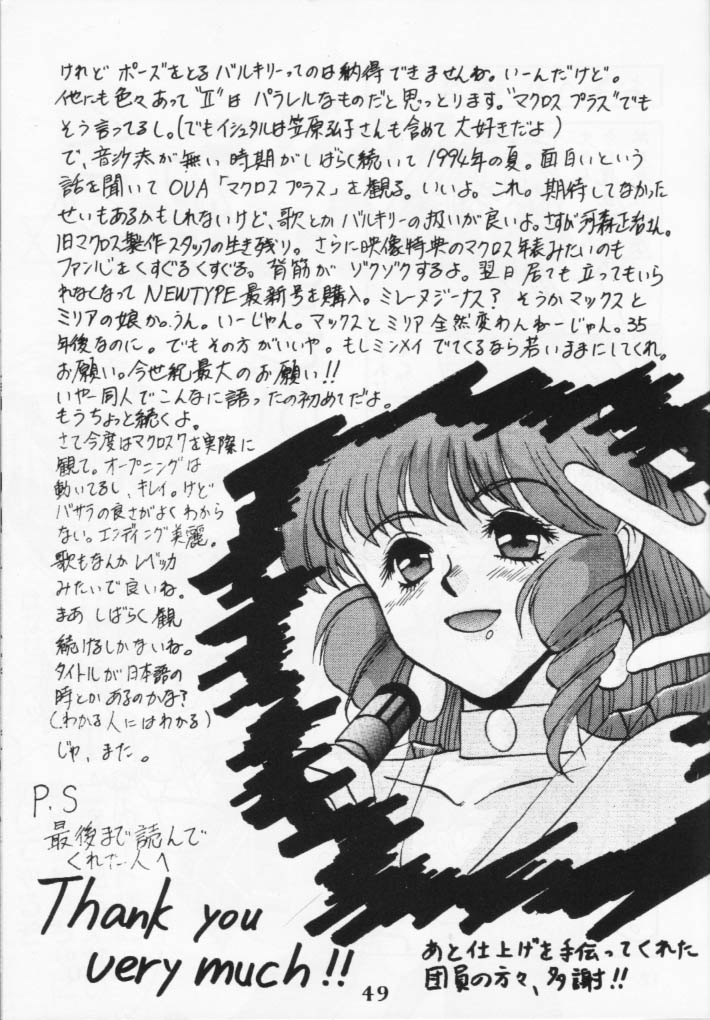 けれど ポーズをとる バルキリーってのは納得できませんね。いーんだけど。
他にも色々あって"Ⅱ"は パラレルなものだと思っとります。"マクロス プラス"でも
そう言ってるし。(でもイシュタルは笠原弘子さんも含めて 大好きだよ)
で、音沙汰が無い 時期がしばらく続いて 1994年の夏。面白いという
話を聞いて OVA「マクロス プラス」を観る。いいよ。これ。期待してなかった
せいもあるかもしれないけど、歌とか バルキリーの扱いが良いよ。さすが河森正治さん。
旧マクロス製作スタッフの生き残り。さらに映像特典のマクロス年表みたいのも
ファン心をくすぐるくすぐる。背筋が ゾクゾクするよ。翌日 居ても 立ってもいら
れなくなって NEWTYPE 最新号を購入。ミレーヌジーナス? そうかマックスと
ミリアの娘か。うん。いーじゃん。マックスと ミリア 全然変わんねーじゃん。35
年後なのに。でも その方がいいや。もしミンメイ でてくるなら若いままにしてくれ。
お願い。今世紀最大の お願い!!
いやー同人でこんなに語ったの初めてだよ。
もうちょっと続くよ。
さて今度はマクロス7を実際に
観て。オープニングは
動いてるし、キレイ。けど
バサラの良さがよくわから
ない。エンディング美麗。
歌もなんか レベッカ
みたいで良いね。
まあ しばらく観
続けるしかないね。
タイトルが日本語の
時とかあるのかな?
(わかる人にはわかる)
じゃ、また。
P.S
最後まで読んで
くれた人へ
Thank you
very much!!
あと仕上げを手伝ってくれた
団員の方々、多謝!!
49